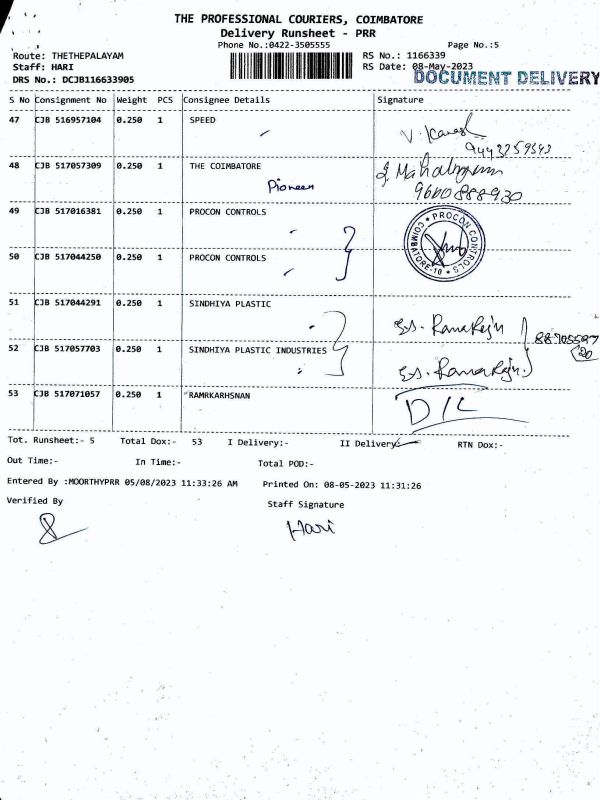 THE PROFESSIONAL COURIERS, COIMBATORE
Delivery Runsheet - PRR
Phone No.:0422-3505555 Page No.:5
Route: THETHEPALAYAM RS No.: 1166339
Staff: HARI RS Date: 08-May-2023
DRS No.: DCJB116633905 DOCUMENT DELIVERY
S No Consignment No Weight PCS Consignee Details Signature
47 CJB 516957104 0.250 1 SPEED
48 CJB 517057309 0.250 1 THE COIMBATORE
Pioneer 9600888930
49 CJB 517016381 0.250 1 PROCON CONTROLS
PROCON CONTROLS COIMBATORE-10
50 CJB 517044250 0.250 1 PROCON CONTROLS
51 CJB 517044291 0.250 1 SINDHIYA PLASTIC
52 CJB 517057703 0.250 1 SINDHIYA PLASTIC INDUSTRIES
53 CJB 517071057 0.250 1 RAMRKARHSNAN D/L
Tot. Runsheet:- 5 Total Dox:- 53 I Delivery:- II Delivery:- RTN Dox:-
Out Time:- In Time:- Total POD:-
Entered By :MOORTHYPRR 05/08/2023 11:33:26 AM Printed On: 08-05-2023 11:31:26
Verified By Staff Signature
Hari